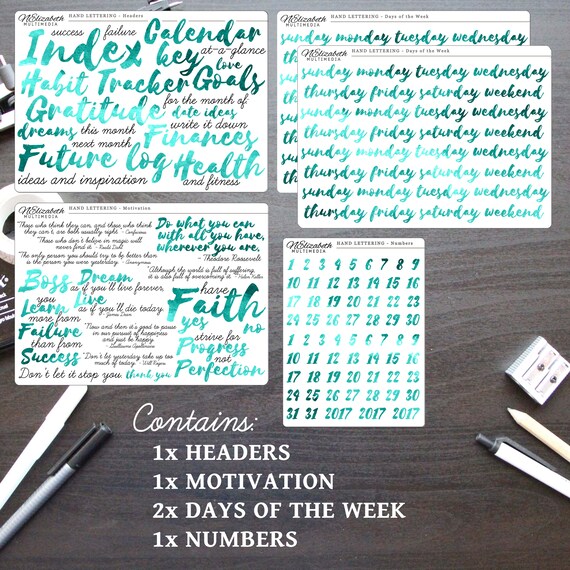 MElizabeth
MULTIMEDIA
HAND LETTERING - Headers
success failure Calendar
Index key at-a-glance
love
Habit Tracker Goals
Gratitude for the month of
date ideas
dreams this month write it down
next month Finances
Future log Health
ideas and inspiration and fitness
HAND LETTERING - Days of the Week
sunday monday tuesday wednesday
MElizabeth
MULTIMEDIA
HAND LETTERING - Days of the Week
sunday monday tuesday wednesday
thursday friday saturday weekend
sunday monday tuesday wednesday
thursday friday saturday weekend
sunday monday tuesday wednesday
thursday friday saturday weekend
sunday monday tuesday wednesday
thursday friday saturday weekend
MElizabeth
MULTIMEDIA
HAND LETTERING - Motivation
Those who think they can, and those who think
they can't, are both usually right. - Confucius
Those who don't believe in magic will
never find it. - Roald Dahl
The only person you should try to be better than
is the person you were yesterday. - Anonymous
Do what you can
with all you have,
wherever you are.
- Theodore Roosevelt
"Although the world is full of suffering,
it is also full of overcoming it." - Helen Keller
Boss Dream
as if you'll live forever.
you Live
Learn as if you'll die today.
more from - James Dean
Failure
than from
Success
"Now and then it's good to pause
in our pursuit of happiness
and just be happy."
- Guillaume Apollinaire
"Don't let yesterday take up too
much of today." - Will Rogers
Don't let it stop you. thank you
have
Faith
yes no
strive for
Progress
not
Perfection
MElizabeth
MULTIMEDIA
HAND LETTERING - Numbers
1 2 3 4 5 6 7 8 9
10 11 12 13 14 15 16
17 18 19 20 21 22 23
24 25 26 27 28 29 30
1 2 3 4 5 6 7 8 9
10 11 12 13 14 15 16
17 18 19 20 21 22 23
24 25 26 27 28 29 30
31 31 2017 2017 2017
Contains:
1x HEADERS
1x MOTIVATION
2x DAYS OF THE WEEK
1x NUMBERS